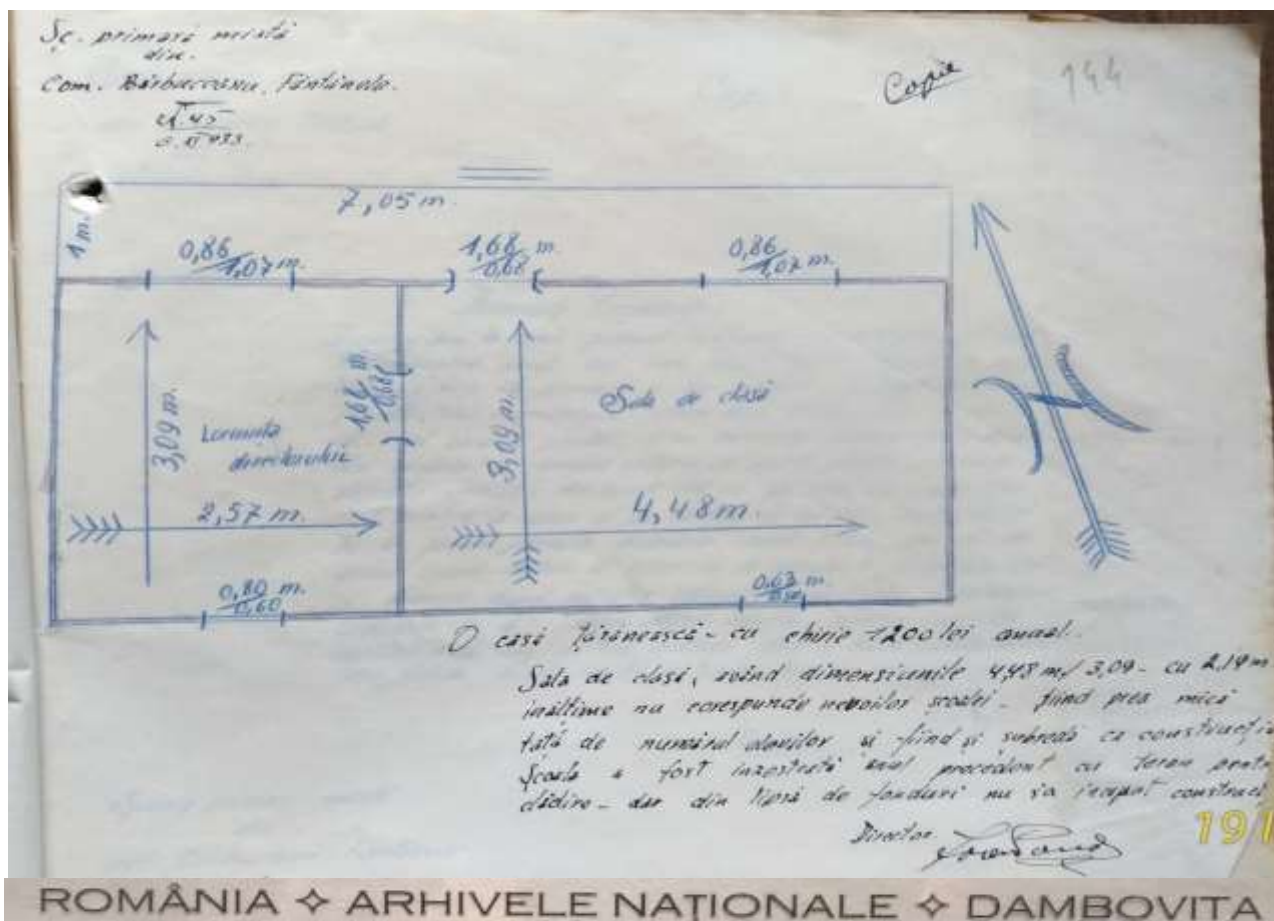 Șc. primară mixtă
din.
Com. Fântânele.
Copie
144
7,05 m.
1 m.
0,86
1,07 m.
1,68 m
0,68
0,86
1,07 m.
1,68 m
0,68
3,09 m.
directorului
2,57 m.
3,09 m.
Sala de clasă
4,48 m.
0,80 m.
0,60
0,63 m
O casă țărănească - cu chirie 1200 lei anual.
Sala de clasă, având dimensiunile 4,48 m/ 3,09 - cu 2,19 m
înălțime nu corespunde nevoilor școalei - fiind prea mică
față de numărul elevilor și fiind și șubredă ca construcție
Școala a fost înzestrată anul precedent cu teren pentru
clădire - dar din lipsă de fonduri nu s'a început
Director
191
ROMÂNIA ✧ ARHIVELE NAȚIONALE ✧ DAMBOVIȚA